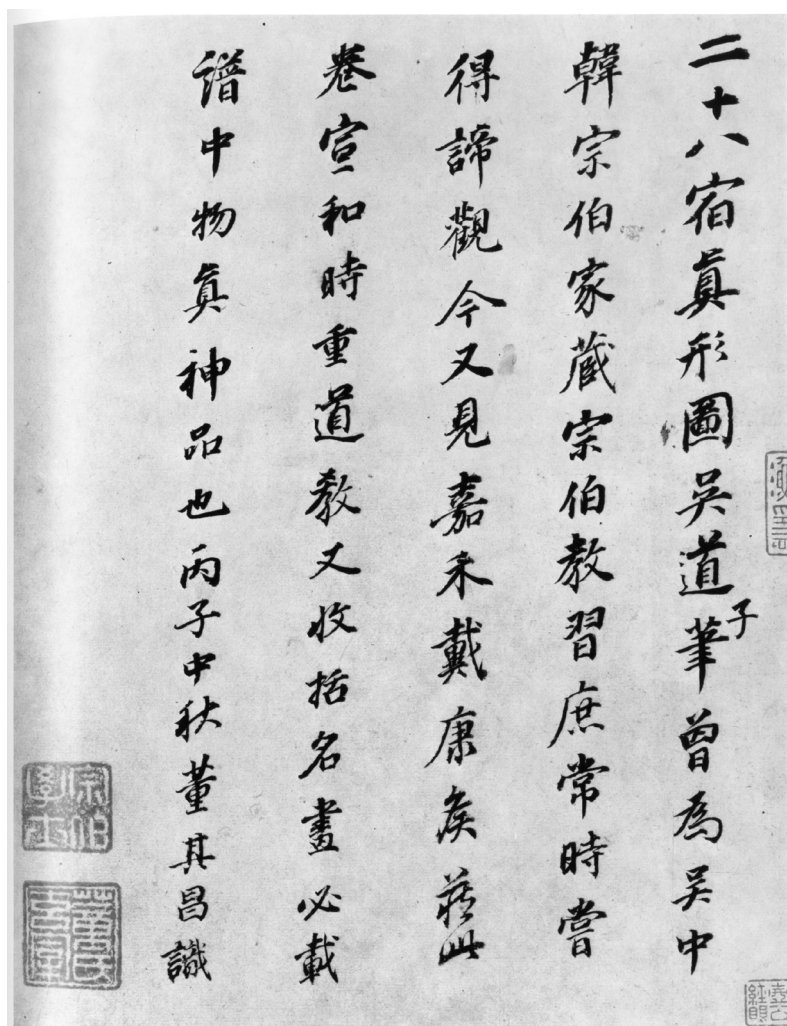 二十八宿真形圖吳道子筆曾為吳中
韓宗伯家蔵宗伯教習庶常時嘗
得諦觀今又見嘉禾戴康侯藏此
卷宣和時重道教又收括名畫必載
譜中物真神品也丙子中秋董其昌識
宗伯學士